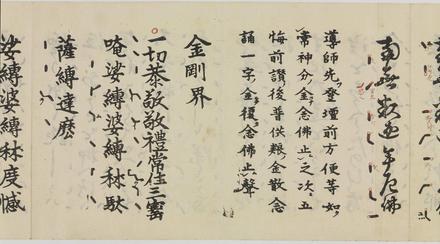 南無釈迦牟尼佛
導師先登壇前方便等如
常神分金念佛止之次五
悔前讃後普供養金散念
誦一字金後念佛止聲
金剛界
一切恭敬敬禮常住三寳
唵娑縛婆縛秫駄
薩縛達麼
娑縛婆縛秫度憾